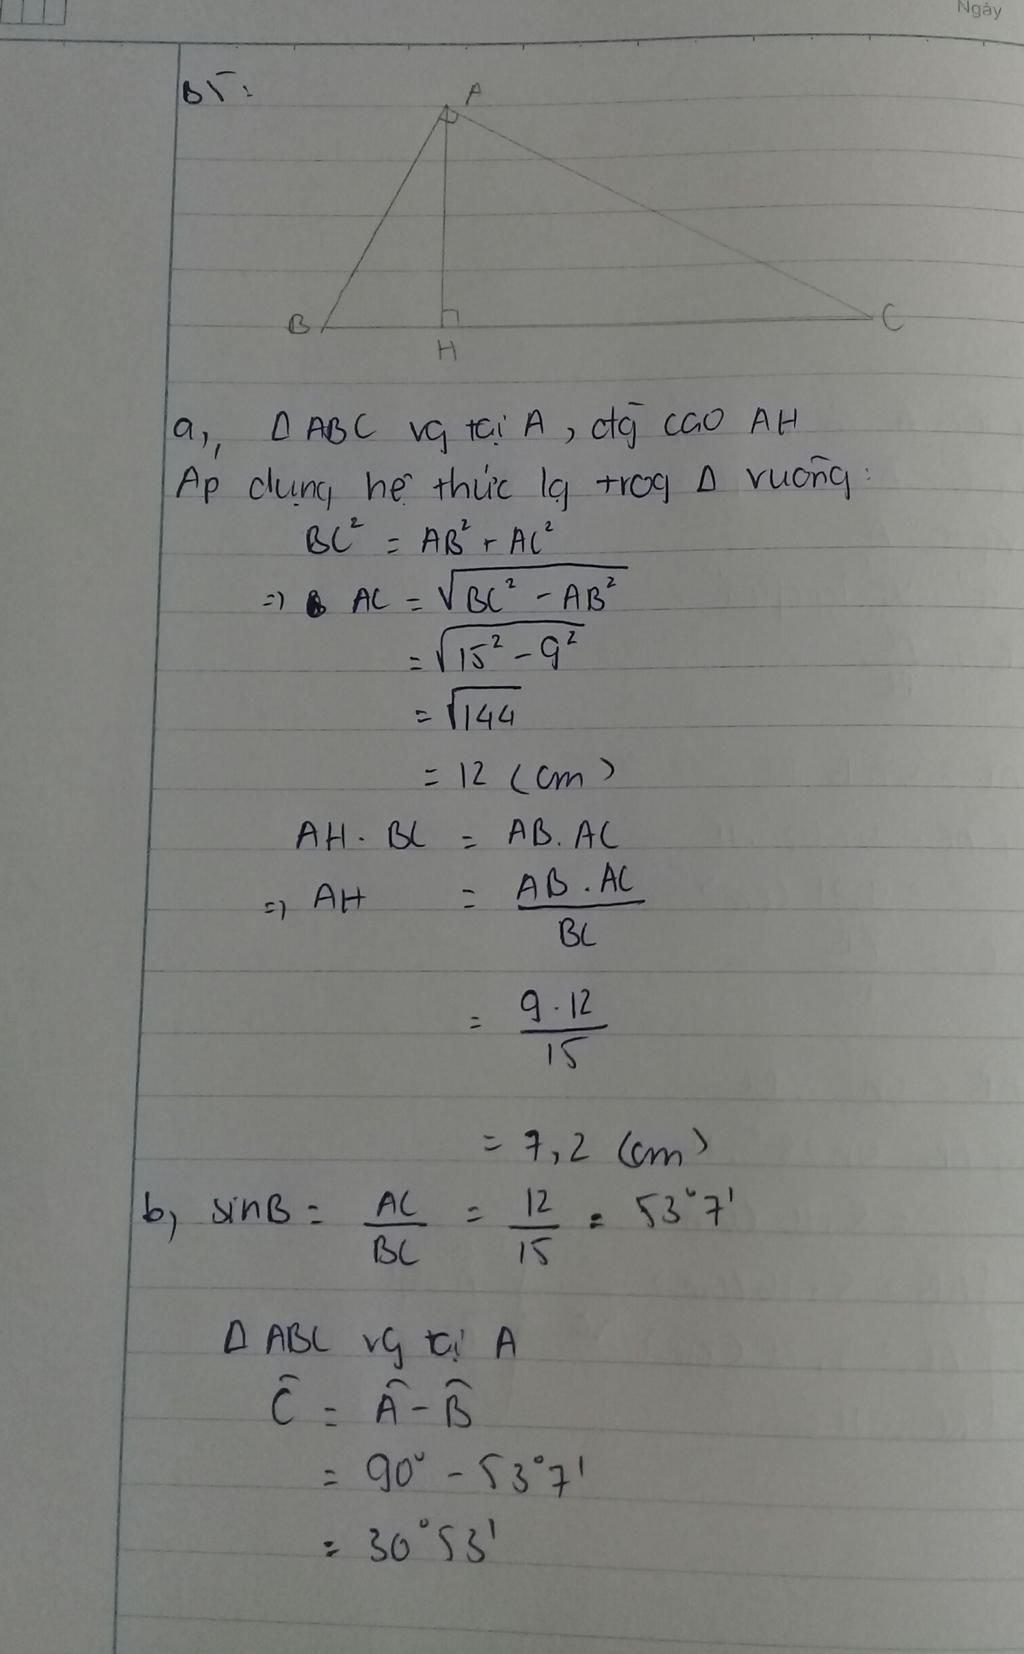 Ngày
B5:
A
B
H
C
a,, Δ ABC vg tại A, đtg cao AH
Áp dụng hệ thức lg trog Δ vuông:
BC² = AB² + AC²
=) AC = √BC² - AB²
= √15² - 9²
= √144
= 12 (cm)
AH. BC = AB. AC
=) AH = AB . AC / BC
= 9 . 12 / 15
= 7,2 (cm)
b, sinB = AC / BC = 12 / 15 = 53°7'
Δ ABC vg tại A
Ĉ = Â - B̂
= 90° - 53°7'
= 30°53'